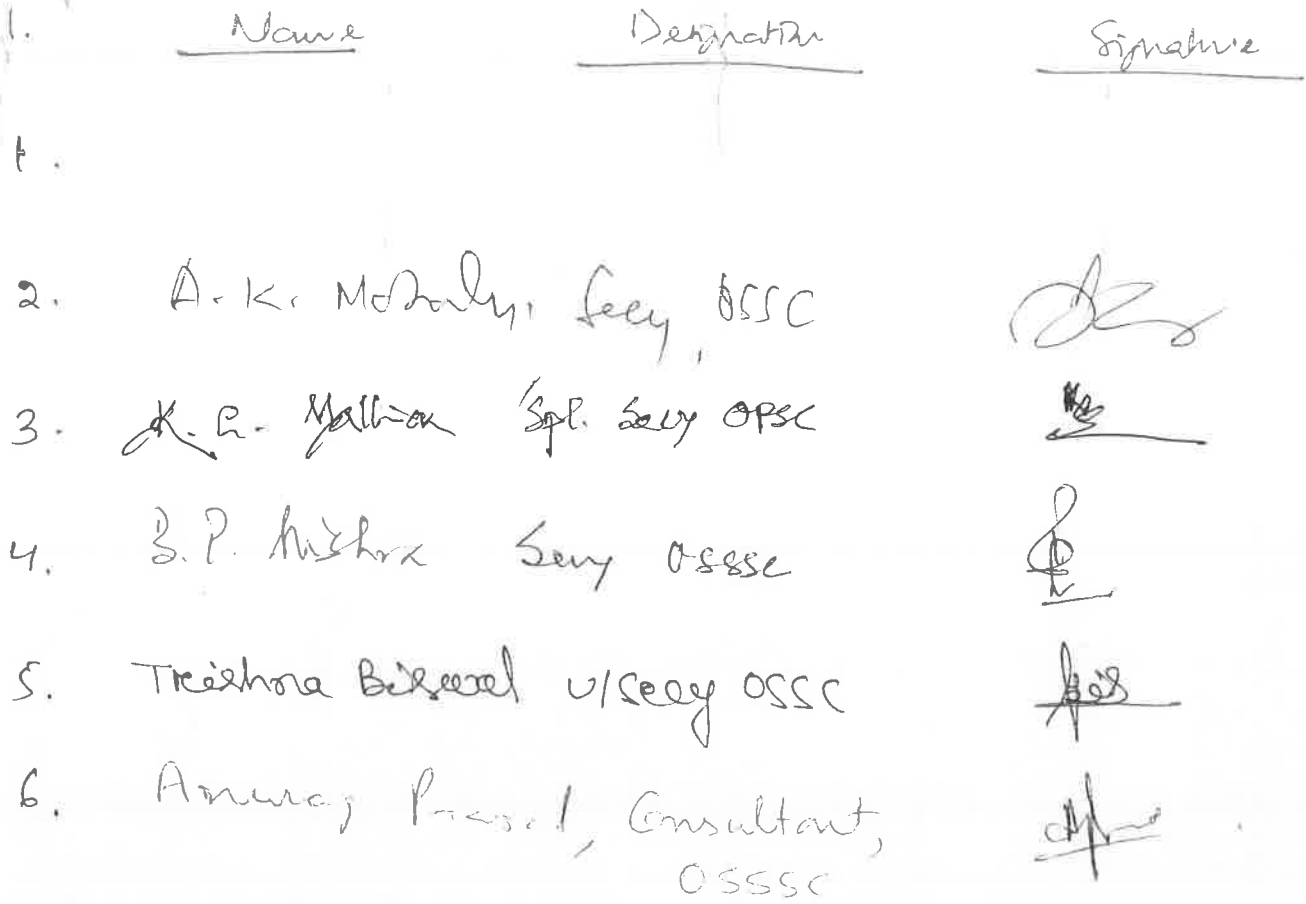 1. Name Designation Signature
1.
2. A. K. Mohanty, Secy, OSSC
3. K. C. Mallick Spl. Secy OPSC
4. B. P. Mishra Secy OSSSC
5. Trishna Biswal U/Secy OSSC
6. Anurag Prasad, Consultant,
OSSSC